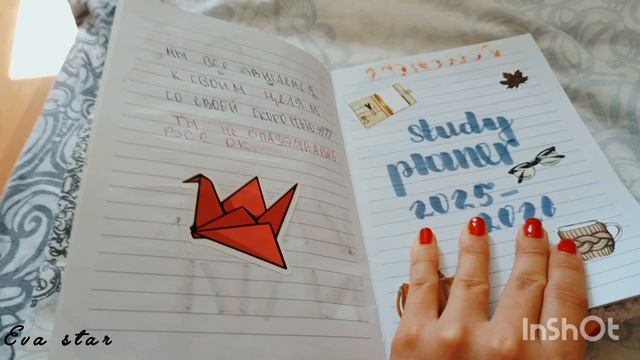 МЫ ВСЕ ДВИГАЕМСЯ
К СВОИМ ЦЕЛЯМ
СО СВОЕЙ СКОРОСТЬЮ
ТЫ НЕ ОПАЗДЫВАЕШЬ
ВСЕ ОК.
study
planer
2025-
2026
Eva star
InShOt